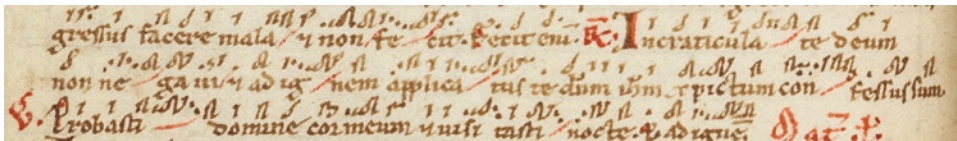 gressus facere mala ⁊ non fe cit. Fecit eni ̄ R̄ Incraticula te deum
non ne gaui ⁊ ad ig nem applica tus te dum ih̄m xpictum con fessus sum
V. Probasti domine cor meum ⁊ uisi tasti nocte. ad ignē